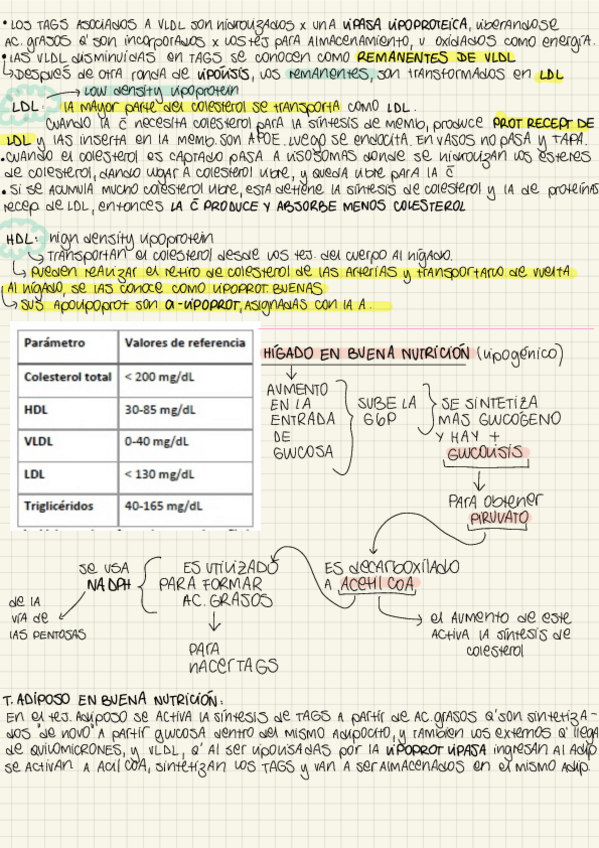 • LOS TAGS ASOCIADOS A VLDL SON HIDROLIZADOS x UNA LIPASA LIPOPROTEICA, LIBERANDOSE
AC. GRASOS Q' SON INCORPORADOS x LOS TEJ PARA ALMACENAMIENTO, U OXIDADOS COMO ENERGÍA.
• LAS VLDL DISMINUIDAS EN TAGS SE CONOCEN COMO REMANENTES DE VLDL
↳ DESPUES DE OTRA RONDA DE LIPOLISIS, LOS REMANENTES, SON TRANSFORMADOS EN LDL
→ LOW DENSITY LIPOPROTEIN
LDL: LA MAYOR PARTE DEL COLESTEROL SE TRANSPORTA COMO LDL.
CUANDO LA C̄ NECESITA COLESTEROL PARA LA SÍNTESIS DE MEMB, PRODUCE PROT RECEPT DE
LDL Y LAS INSERTA EN LA MEMB. SON APOE. LUEGO SE ENDOCITA. EN VASOS NO PASA Y TAPA.
• CUANDO EL COLESTEROL ES CAPTADO PASA A LISOSOMAS DONDE SE HIDROLIZAN LOS ESTERES
DE COLESTEROL, DANDO LUGAR A COLESTEROL LIBRE, Y QUEDA LIBRE PARA LA C̄
• SI SE ACUMULA MUCHO COLESTEROL LIBRE, ESTA DETIENE LA SINTESIS DE COLESTEROL Y LA DE PROTEINAS
RECEP DE LDL, ENTONCES LA C̄ PRODUCE Y ABSORBE MENOS COLESTEROL
HDL: HIGH DENSITY LIPOPROTEIN
↳ TRANSPORTAN EL COLESTEROL DESDE LOS TEJ. DEL CUERPO AL HÍGADO.
↳ PUEDEN REALIZAR EL RETIRO DE COLESTEROL DE LAS ARTERIAS Y TRANSPORTARLO DE VUELTA
AL HÍGADO, SE LAS CONOCE COMO LIPOPROT. BUENAS
↳ SUS APOLIPOPROT SON α-LIPOPROT, ASIGNADAS CON LA A.
Parámetro Valores de referencia
Colesterol total < 200 mg/dL
HDL 30-85 mg/dL
VLDL 0-40 mg/dL
LDL < 130 mg/dL
Triglicéridos 40-165 mg/dL
HÍGADO EN BUENA NUTRICIÓN (LIPOGÉNICO)
AUMENTO
EN LA
ENTRADA
DE
GLUCOSA
SUBE LA
G6P
SE SINTETIZA
MAS GLUCÓGENO
Y HAY +
GLUCOLISIS
PARA OBTENER
PIRUVATO
ES DECARBOXILADO
A ACETIL COA
EL AUMENTO DE ESTE
ACTIVA LA SÍNTESIS DE
COLESTEROL
ES UTILIZADO
PARA FORMAR
AC. GRASOS
PARA
HACER TAGS
SE USA
NADPH
DE LA
VÍA DE
LAS PENTOSAS
T. ADIPOSO EN BUENA NUTRICIÓN:
EN EL TEJ. ADIPOSO SE ACTIVA LA SÍNTESIS DE TAGS A PARTIR DE AC. GRASOS Q' SON SINTETIZA-
DOS "DE NOVO" A PARTIR GLUCOSA DENTRO DEL MISMO ADIPOCITO, Y TAMBIEN LOS EXTERNOS Q' LLEGA
DE QUILOMICRONES, Y VLDL, Q' AL SER LIPOLISADAS POR LA LIPOPROT LIPASA INGRESAN AL ADIP
SE ACTIVAN A ACIL COA, SINTETIZAN LOS TAGS Y VAN A SER ALMACENADOS EN EL MISMO ADIP.